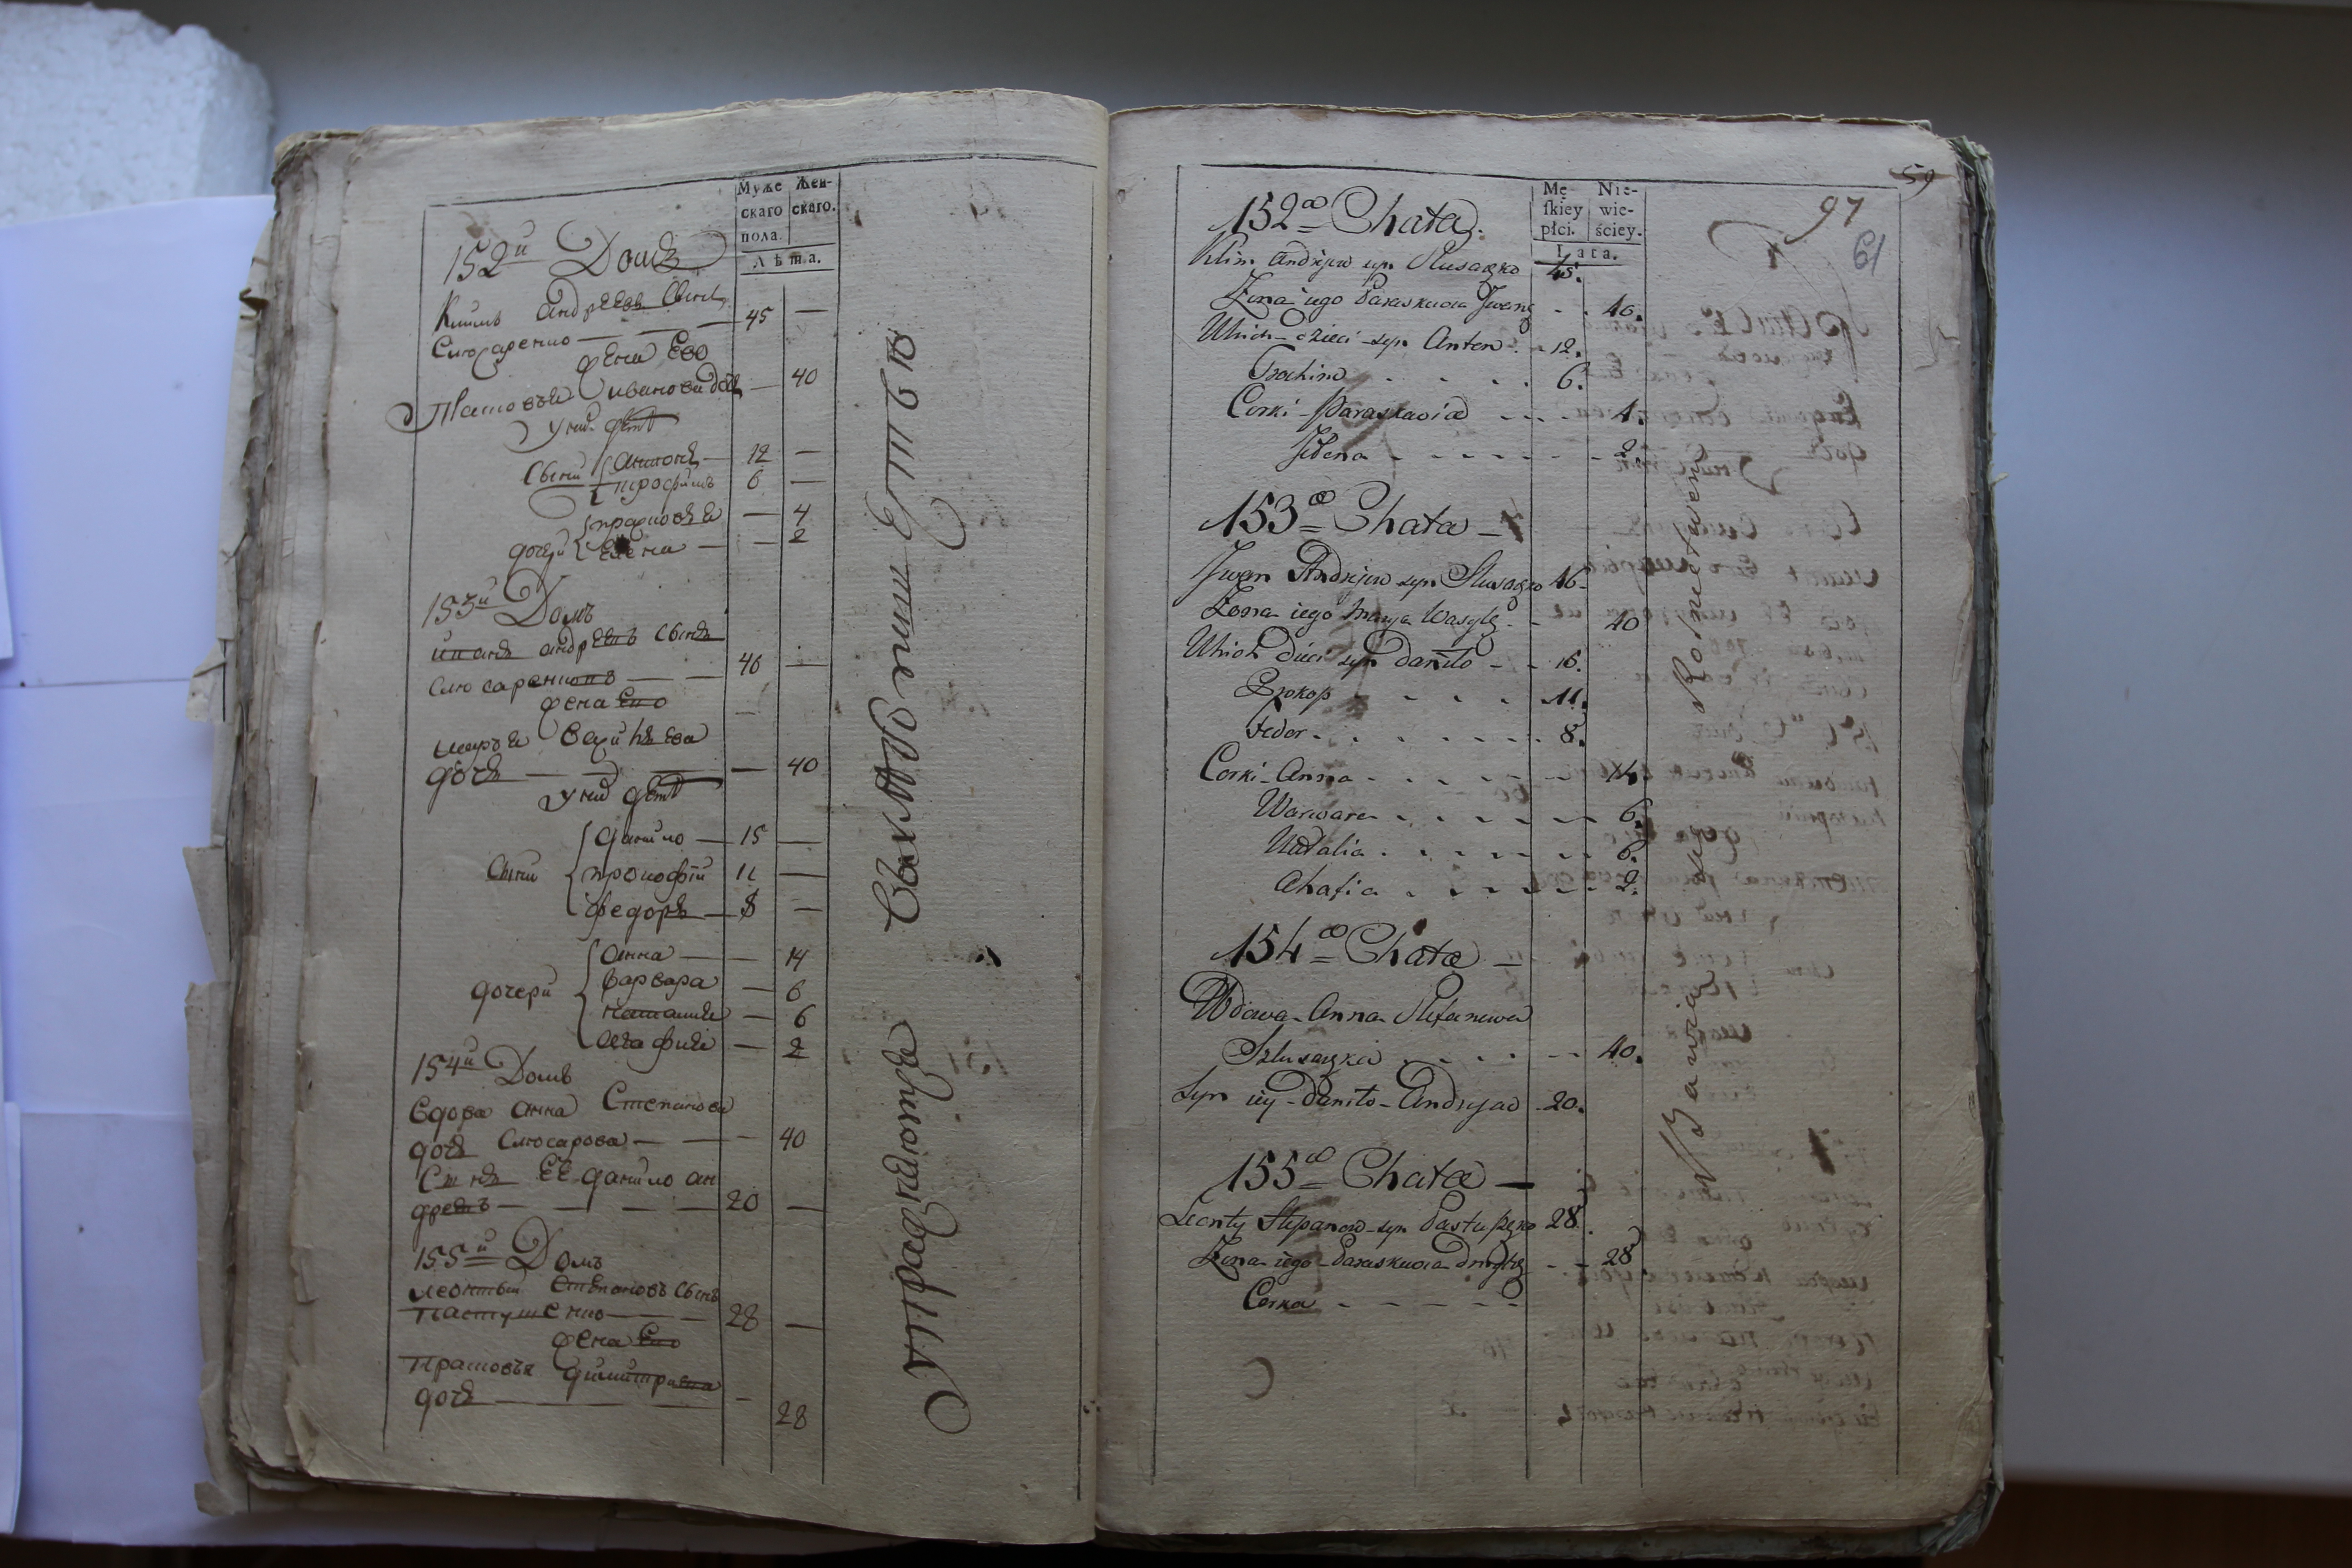 Муже Жен-
скаго скаго.
пола.
Лѣта.
152й Домъ
Климъ Андреевъ Сынъ
Слюсаренко — 45 —
жена Ево
Прасковья ивановa дочь — 40
у них дети
Сыни Антонъ — 12 —
трофимъ 6 —
дочери прасковья — 4
Елена — 2
153й Домъ
иванъ андреевъ Сынъ
Слюсаренковъ — 46 —
жена Ево
марья Василева
дочь — 40
у них дети
Сыни данило — 15 —
прокофий 11 —
федоръ — 8 —
дочери Анна — 14
варвара — 6
наталия — 6
агафия — 2
154й Домъ
вдова анна Степанова
дочь Слюсарова — 40
Сынъ Ее данило ан
древъ — 20 —
155й Домъ
леонтий Степановъ Сынъ
Пастушенко — 28 —
жена Ево
Прасковья димитриева
дочь — 28
Упражняются в хлебопашестве
59
97
61
Mę- Nie-
skiey wie-
płci. ściey.
Lata.
152a Chata.
Klim Andrejew syn Slusarzko 45.
Żona iego Paraskiewia Jwana - 40.
U nich dzieci syn Anton - 12.
Trochim - 6.
Corki - Paraskewia - 4.
Jlena - 2.
153a Chata -
Jwan Andrejew syn Slusarzko 46 -
Żona iego Marya Wasyla - 40
U nich dzieci syn Daniło - 15.
Prokop - 11.
Fedor - 8.
Corki - Anna - 14.
Warwara - 6.
Natalia - 6.
Ahafia - 2.
154a Chata -
Wdowa - Anna Stefanowa
Szlusarzka - 40.
Syn iey - Daniło - Andryjow 20.
155a Chata -
Leonty Stepanow - syn Pastuszko 28.
Żona iego - Paraskiewia Dmytra - 28
Corka -
Bawią się Rolnictwem